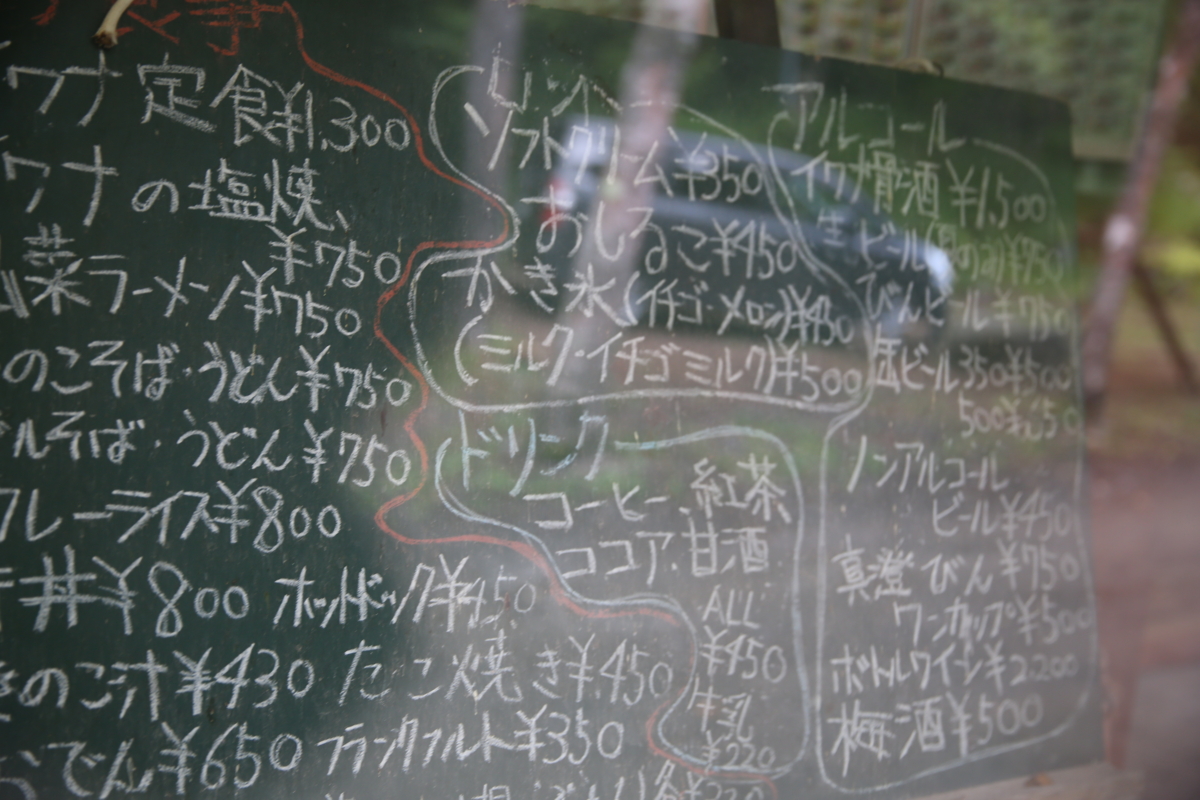 食事
ワナ定食¥1,300
ワナの塩焼、
¥750
菜ラーメン¥750
のこそば・うどん¥750
ルそば・うどん¥750
レーライス¥800
丼¥800 ホットドック¥450
のこ汁¥430 たこ焼き¥450
おでん¥650 フランクフルト¥350
ソフトクリーム¥350
おしるこ¥450
かき氷(イチゴ・メロン)¥450
(ミルク・イチゴミルク)¥500
ドリンク
コーヒー.紅茶
ココア.甘酒
ALL
¥450
牛乳
¥220
アルコール
イワナ骨酒¥1,500
生ビール
びんビール¥750
缶ビール350¥500
500¥650
ノンアルコール
ビール¥450
真澄びん¥750
ワンカップ¥500
ボトルワイン¥2.200
梅酒¥500